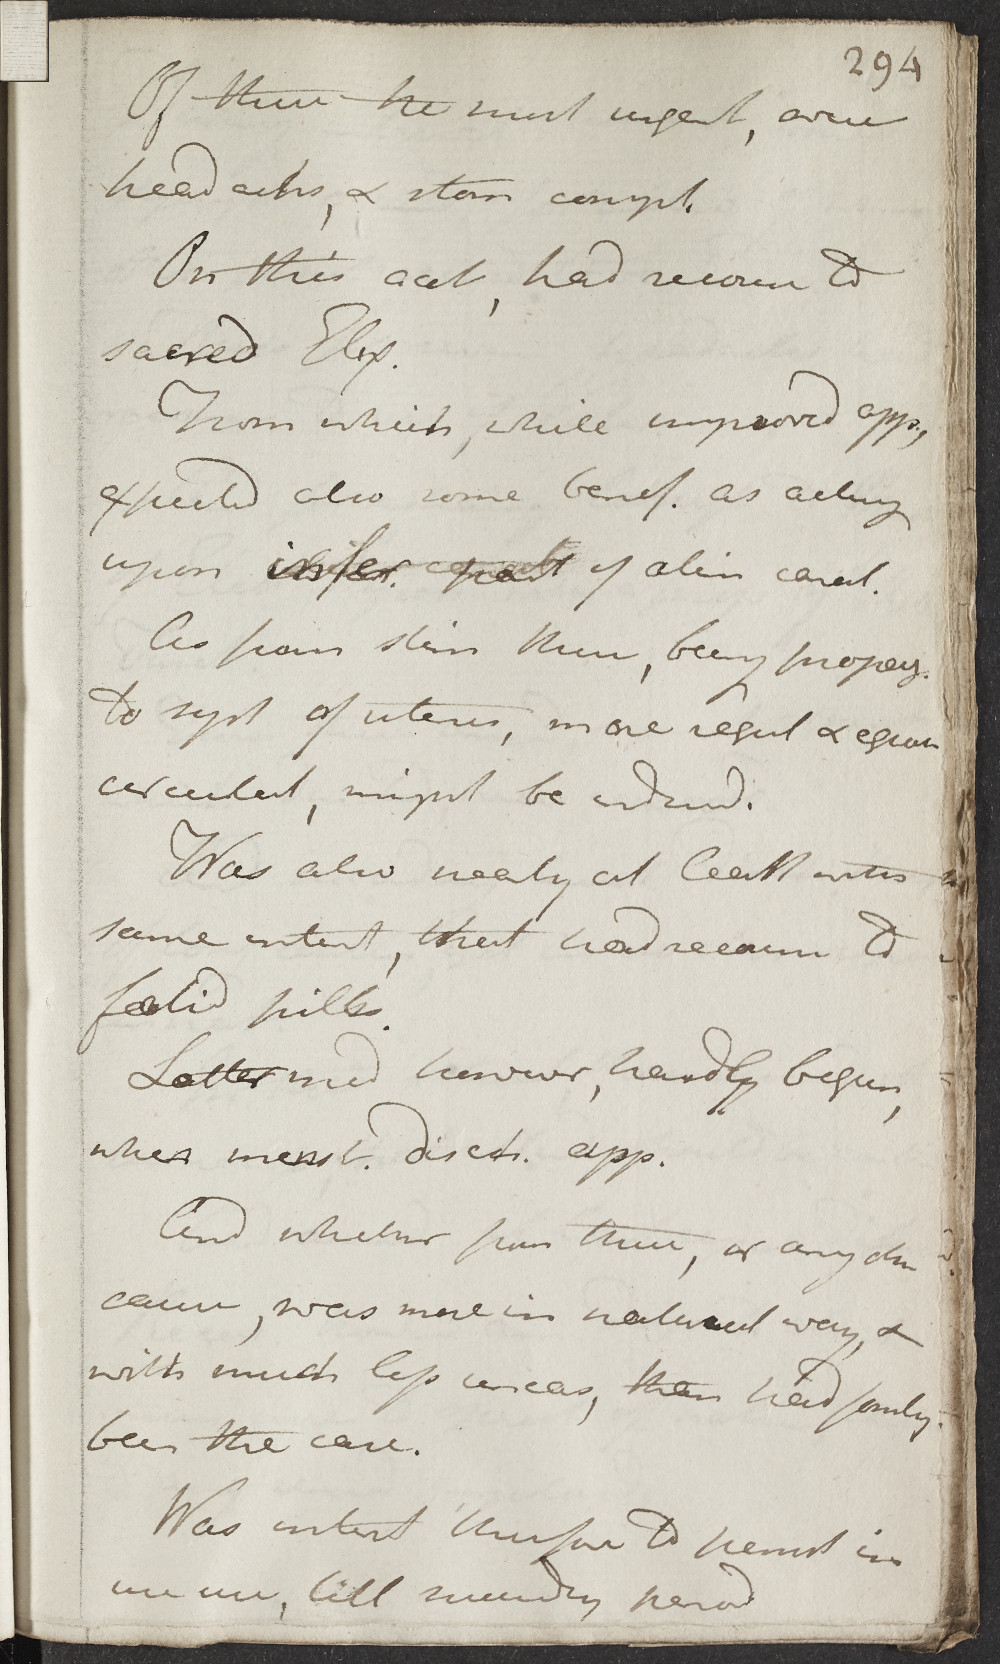 294
Of these the most urgent, were
head achs, & stom compl.
On this acct, had recourse to
sacred Elix.
From which, while improved app.,
expected also some benef. as acting
upon infer. part of alim canal.
As from stim thus, being propag.
to syst of uterus, more regul & equal
circulat, might be induced.
Was also nearly at least with
same intent, that had recourse to
foetid pills.
Latter med however, hardly begun,
when menst. disch. app.
And whether from these, or any other
cause, was more in natural way, &
with much less uneas, than had formerly
been the case.
Was intent therefore to persist in
use, till succeeding period